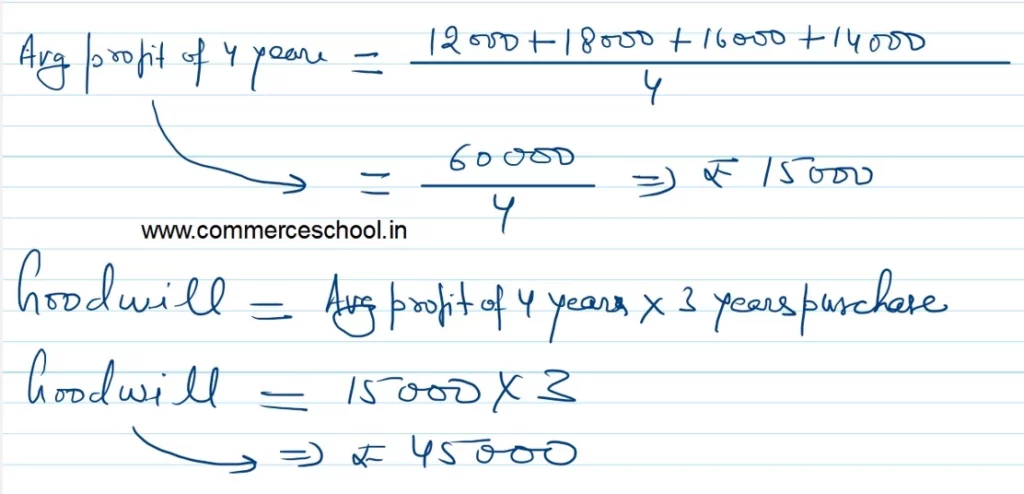 Avg profit of 4 years = 12000+18000+16000+14000
4
= 60000 ⇒ ₹ 15000
4
www.commerceschool.in
Goodwill = Avg profit of 4 years × 3 years purchase
Goodwill = 15000 × 3
⇒ ₹ 45000